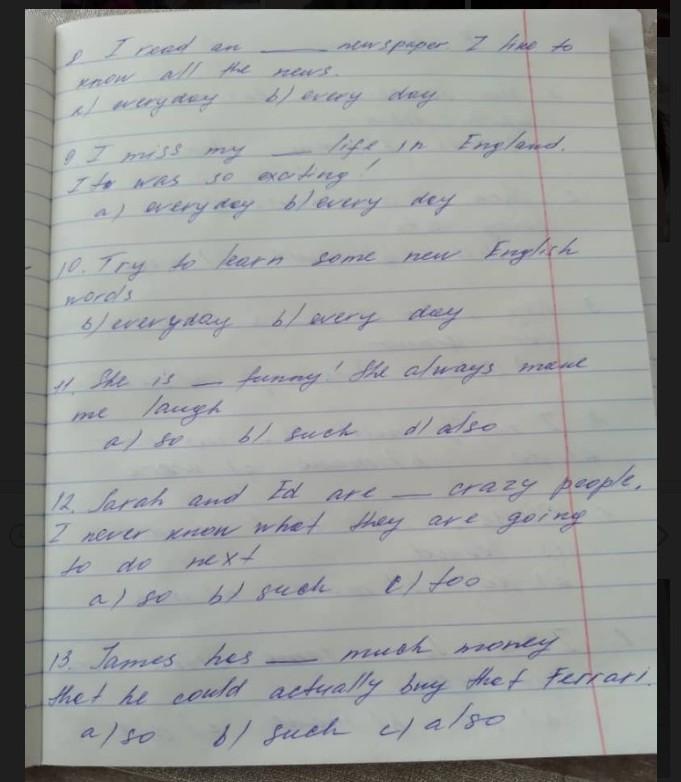 8 I read an ___ newspaper. I like to
know all the news.
a) everyday b) every day
9 I miss my ___ life in England.
I was so exciting!
a) everyday b) every day
10. Try to learn some new English
words
b) everyday b) every day
11. She is ___ funny! She always make
me laugh
a) so b) such d) also
12. Sarah and Ed are ___ crazy people.
I never know what they are going
to do next
a) so b) such c) too
13. James has ___ much money
that he could actually buy that Ferrari.
a) so b) such c) also